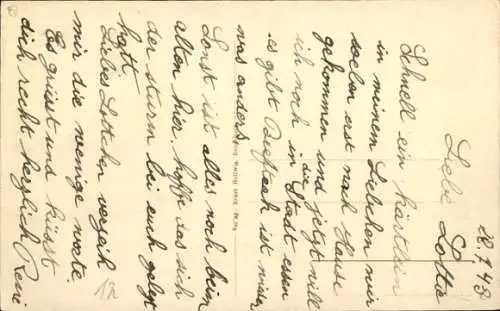 28.7.48
Liebe Lottie
Schnell ein kärtlein
in meinen Liebchen mir
soeben erst nach Hause
gekommen und jetzt will
ich noch in die Stadt essen
es gibt Beefsteck ist mier
was anders.
Sonst ist alles noch beim
alten hier. hoffe das sich
der sturm bei euch gelegt
hatt.
Liebes Lottchen verzeih
mir die wenige worte.
Es grüsst und küsst
dich recht herzlich René
12